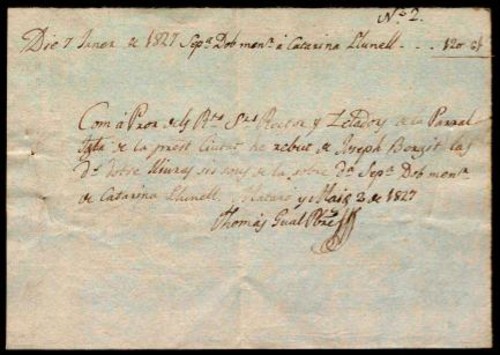 Nº 2.
Die 7 Janer de 1827 Sepª Dob menª á Catarina Llunell - . . 12ơ 6§
Com á Pror dels Rts Srs Rector y Zeladors de la Parral
Iglª de la prest Ciutat he rebut de Joseph Borgit las
dª dotse lliuras sis sous de la sobre dª Sepª Dob menª
de Catarina Llunell. Mataró y Maig 2 de 1827
Thomás Gual Pbre